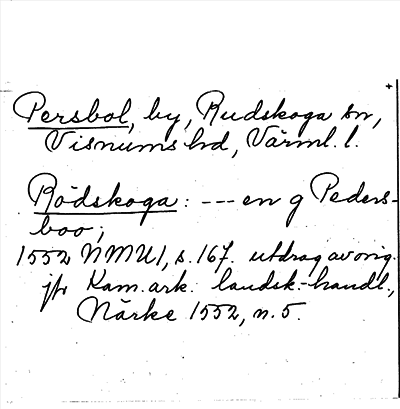 Persbol, by, Rudskoga sn,
Visnums hd, Värml. l.
Rödskoga: --- en g Peders-
boo;
1552 NMU1, s. 167. utdrag av orig.
jfr Kam. ark. landsk.-handl.,
Närke 1552, n. 5.